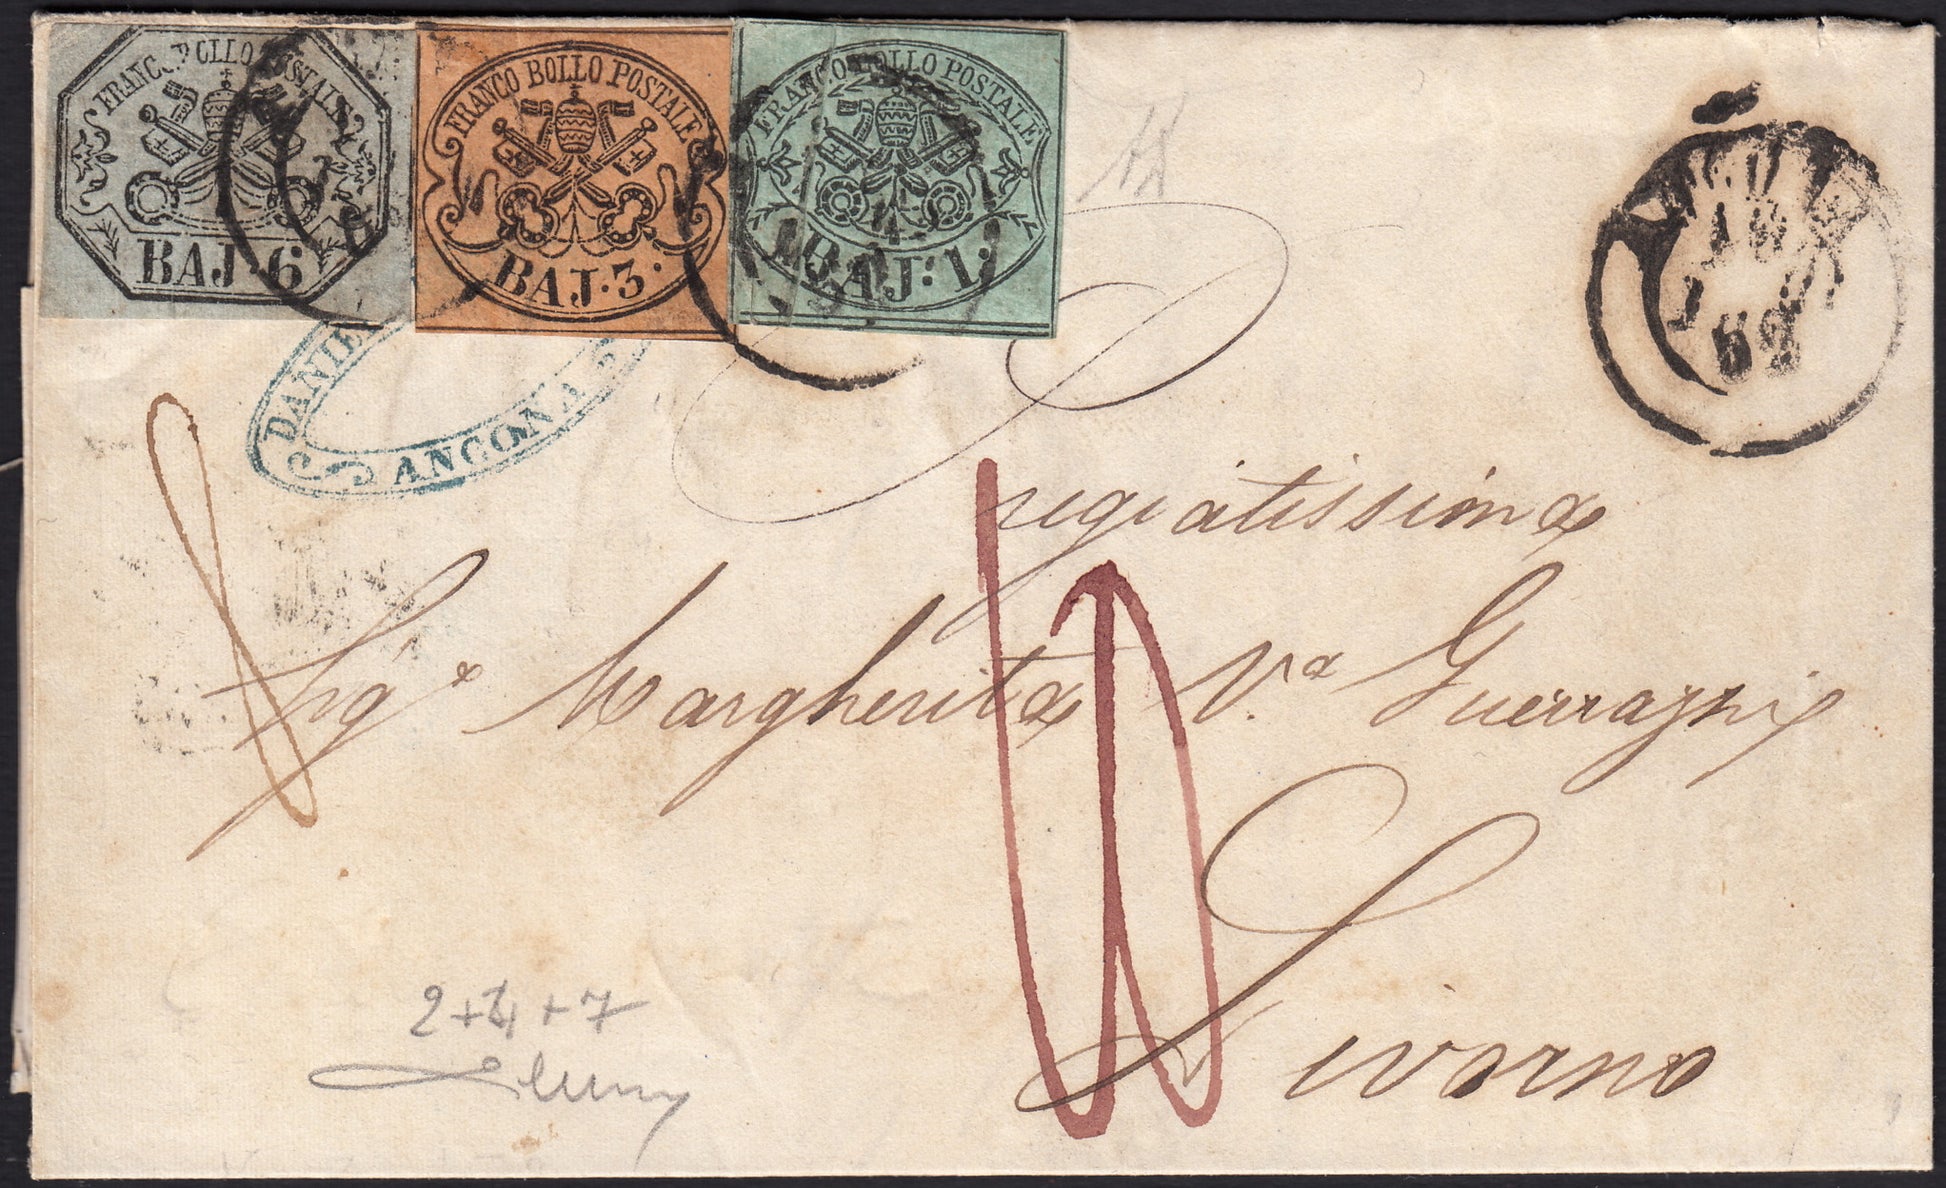 FRANCO BOLLO POSTALE
BAJ. 6
FRANCO BOLLO POSTALE
BAJ. 3.
FRANCO BOLLO POSTALE
BAJ: 1.
ANCONA
18
Pregiatissima
Sig.ª Margherita V.ª Guerrazzi
Livorno
2+4+7